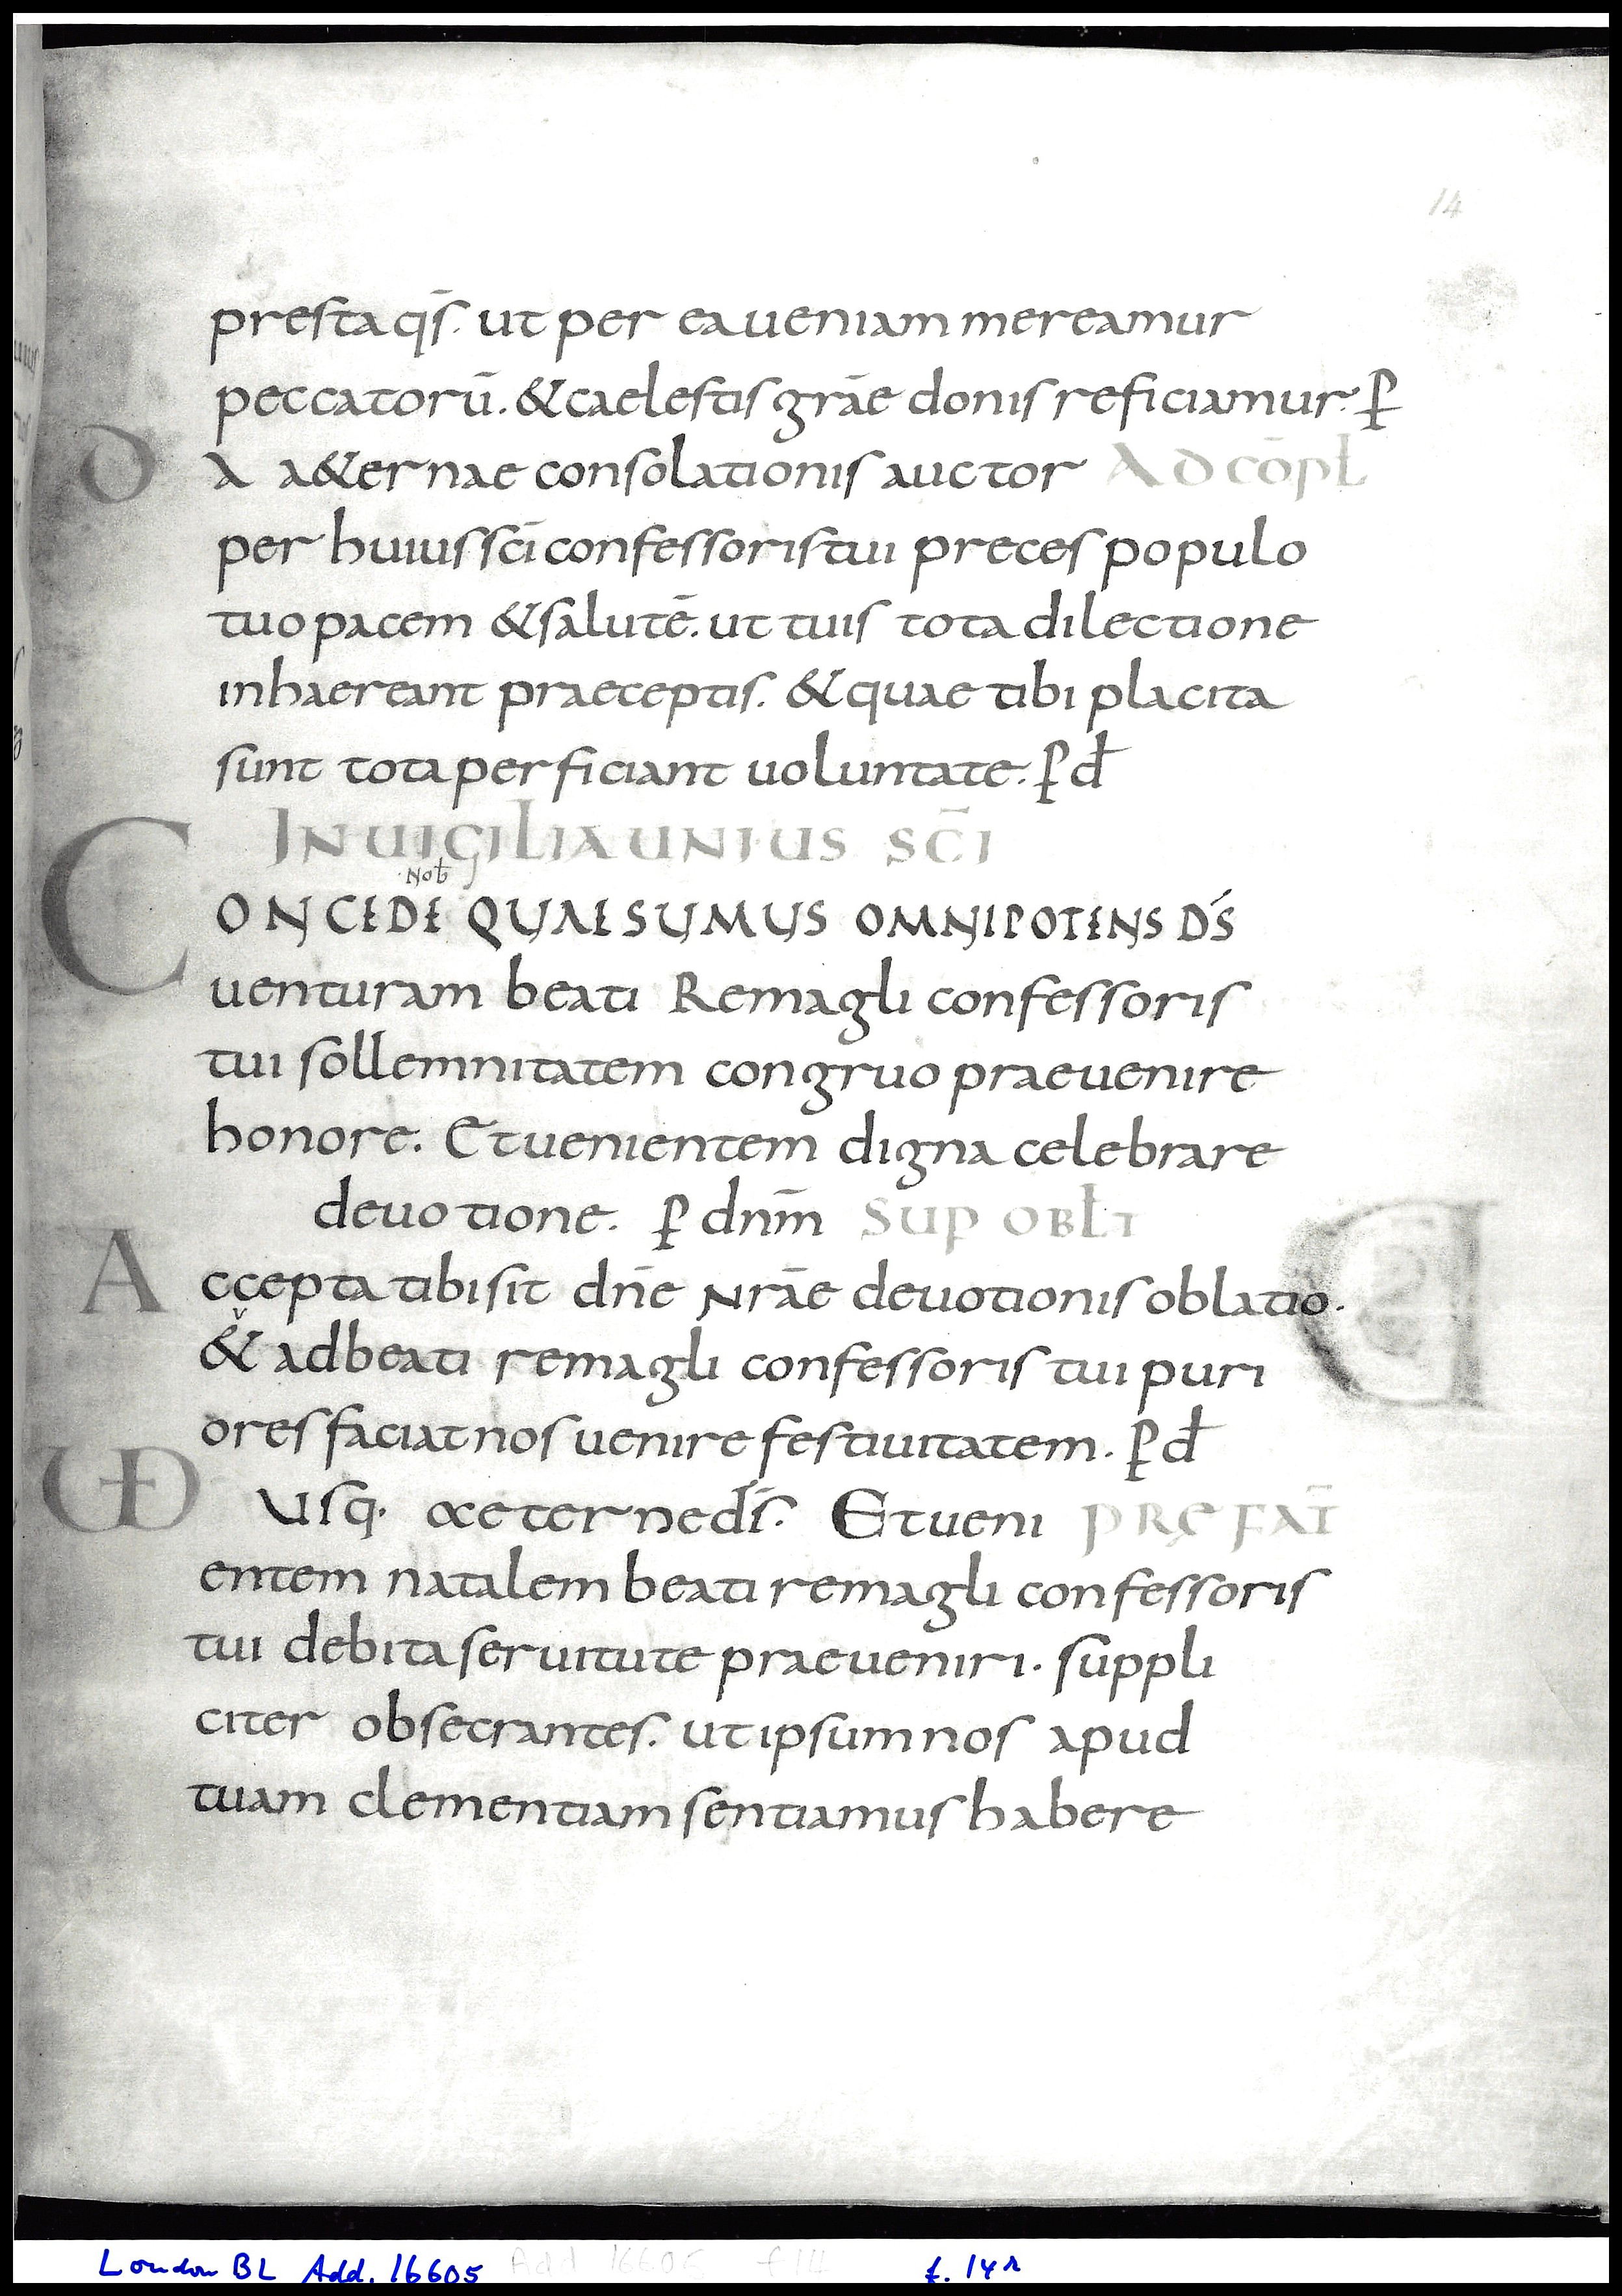 14
presta qs̄. ut per ea ueniam mereamur
peccatorū. & caelestis grāe donis reficiamur. ꝑ
DA a&ernae consolationis auctor AD COP̄L
per huius scī confessoris tui preces populo
tuo pacem & salutē. ut tuis tota dilectione
inhaereant praeceptis. & quae tibi placita
sunt tota perficiant uoluntate. ꝑ dł
IN UIGILIA UNIUS SC̄I
Nob̄
CONCEDE QUAESUMUS OMNIPOTENS DS̄
uenturam beati Remagli confessoris
tui sollemnitatem congruo praeuenire
honore. Et uenientem digna celebrare
deuotione. ꝑ dnm̄ SUP OBŁT
Accepta tibi sit dn̄e nrāe deuotionis oblatio.
& ad beati remagli confessoris tui puri
ores faciat nos uenire festiuitatem. ꝑ dł
UD Usq. aeterne ds̄. Et ueni PRĘFAT̄
entem natalem beati remagli confessoris
tui debita seruitute praeueniri. suppli
citer obsecrantes. ut ipsum nos apud
tuam clementiam sentiamus habere
London BL Add. 16605 Add 16605 f 14 f. 14r